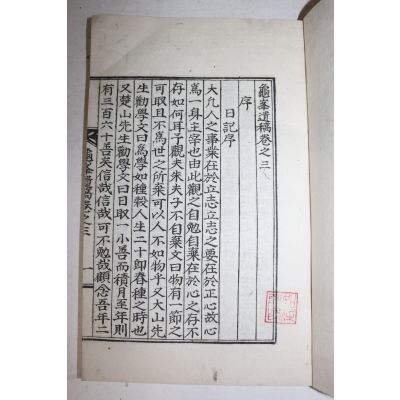 龜峯遺稿卷之三
序
日記序
大凢人之事業在於立志立志之要在於正心故心
爲一身主宰也由此觀之自勉自棄在於心之存不
存如何耳予觀夫朱夫子不自棄文曰物有一節之
可取且不爲世之所棄可以人不如物乎又大山先
生勸學文曰爲學如種殺人生二十卽春種之時也
又楚山先生勸學文曰日取一小善而積月至年則
有三百六十善矣信哉信哉可不勉哉顧念吾年二
龜峯遺稿卷之三
一